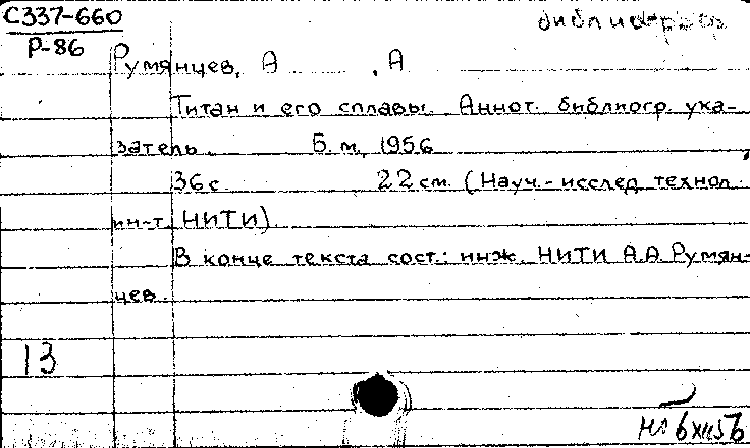 С337-660
Р-86
библиогр
Румянцев, А , А
Титан и его сплавы. Аннот. библиогр. ука-
затель. Б.м, 1956
36с. 22 см. (Науч.-исслед технол.
ин-т. НИТИ)
В конце текста сост.: инж. НИТИ А.А. Румян-
цев.
13